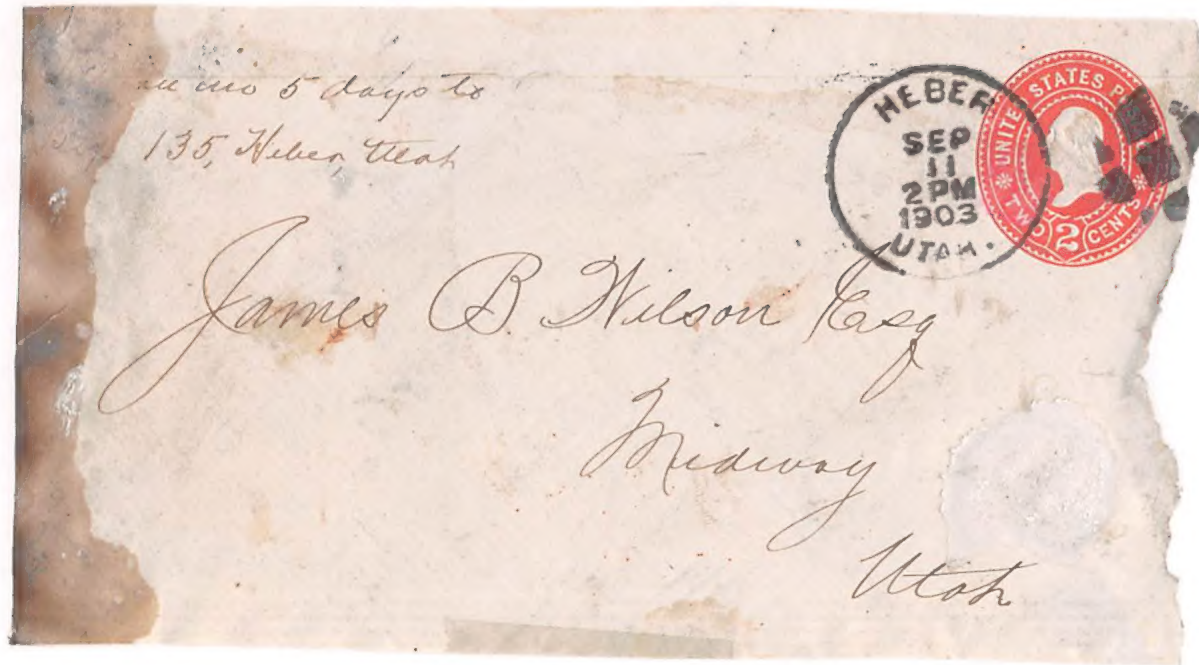 in 5 days to
135, Heber, Utah
HEBER
SEP
11
2 PM
1903
UTAH.
UNITED STATES POSTAGE
TWO 2 CENTS
James B. Wilson Esq
Midway
Utah